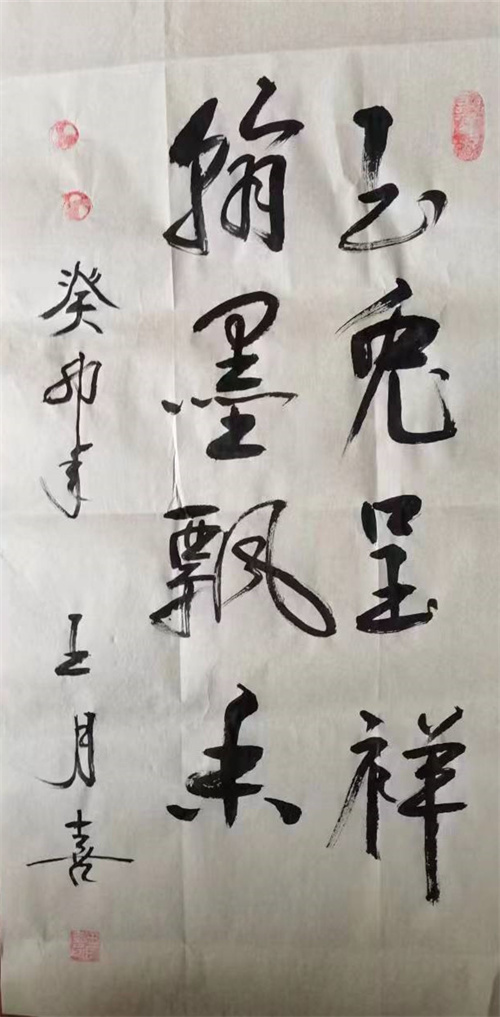 玉兔呈祥
翰墨飘香
癸卯年 王月喜